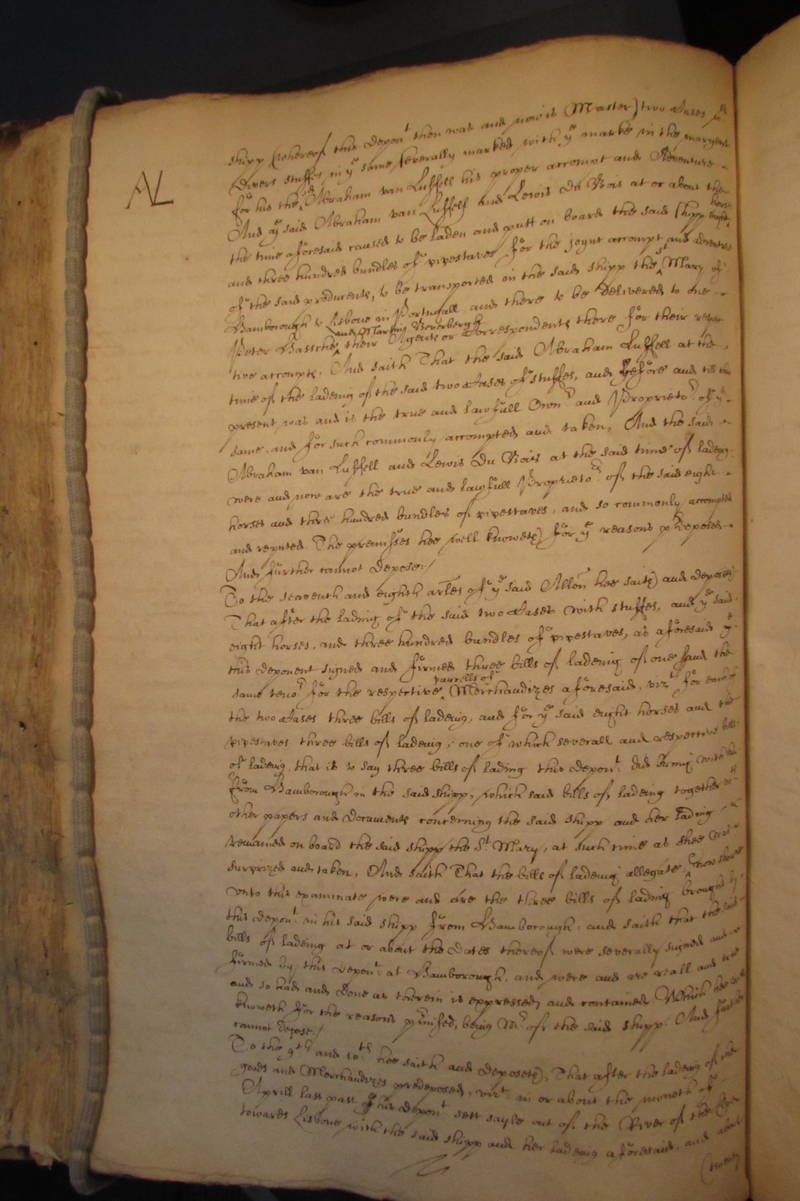 AL
shipp (whereof this depon.t then was and now is Master) two Cases w.th
divers stuffes in y.e same severally marked with y.e marke in the margent
for his the s.d Abraham van Lussell his proper accompt and Adventure
And y.e said Abraham van Lussell and Lewis Du Bois at or about the
the time aforesaid caused to be laden and putt on board the said shipp eight horses
and three hundred bundles of pipestaves for the joynt accompt and adventure
of the said producents, to be transported in the said shipp the S.t Mary of
Hamborough to Lisbone in Portugall and there to be delivered to one
Peter Hassche and Martin Boverbergh their Agents or Correspondents there for their respec
tive accompts, And saith That the said Abraham Lussell at the
time of the lading of the said two Cases of stuffes, and before and till this
present, was and is the true and lawfull Own.r and Proprieto.r of y.e
same, and for such commonly accompted and taken, And the said
Abraham van Lussell and Lewis Du Bois at the said time of lading
were and now are the true and lawfull Proprieto.rs of the said eight
horses and three hundred bundles of pipestaves, and so commonly accompted
and reputed. The premisses hee well knoweth for y.e reasons p.rdeposed
And further cannot depose./
To the seaventh and eighth ar.les of y.e said Allon. hee saith and deposeth
That after the lading of the said two Cases with stuffes, and y.e said
eight horses, and three hundred bundles of pipestaves, as aforesaid
this deponent signed and firmed three bills of lading of one and the
same teno.r for the respective parcells of Merchandizes aforesaid, viz.t for each of
the two Cases three bills of lading, and for y.e said eight horses and the
pipestaves three bills of lading, one of which severall and respective bills
of lading, that is to say three bills of lading this depon.t did bring with him
from Hamborough in the said shipp, which said bills of lading together w.th
other papers and documents concerning the said shipp and her lading
remained on board the said shipp the S.t Mary, at such time as shee was
surprized and taken, And saith That the bills of lading allegate now shewed
unto this examinate were and are the three bills of lading brought by
this depon.t in his said shipp from Hamborough, and saith that the said
bills of lading at or about the dates thereof were severally signed and
firmed by this depon.t at Hamborough, and were and are reall and true
and so had and done as therein is expressed and contained Which hee
knoweth for the reasons p.rmised, being M.r of the said shipp. And further
cannot depose./
To the 9.th and 10.th hee saith and deposeth, That after the lading of the
goods and Merchandizes predeposed, viz.t in or about the moneth of
Aprill last past this depon.t sett sayle out of the River of the Elve
towards Lisbone with the said shipp and her lading aforesaid, and about
twenty